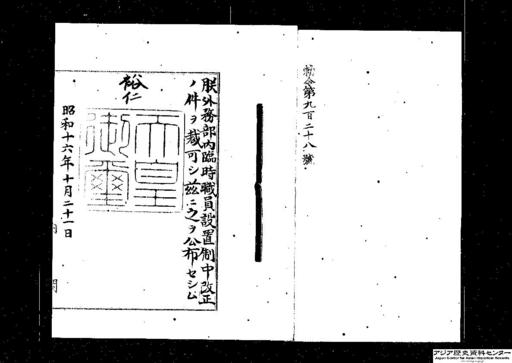 勅令第九百二十八號
朕外務部內臨時職員設置制中改正
ノ件ヲ裁可シ茲ニ之ヲ公布セシム
裕仁
天皇
御璽
昭和十六年十月二十一日
内
閣
アジア歴史資料センター
Japan Center for Asian Historical Records